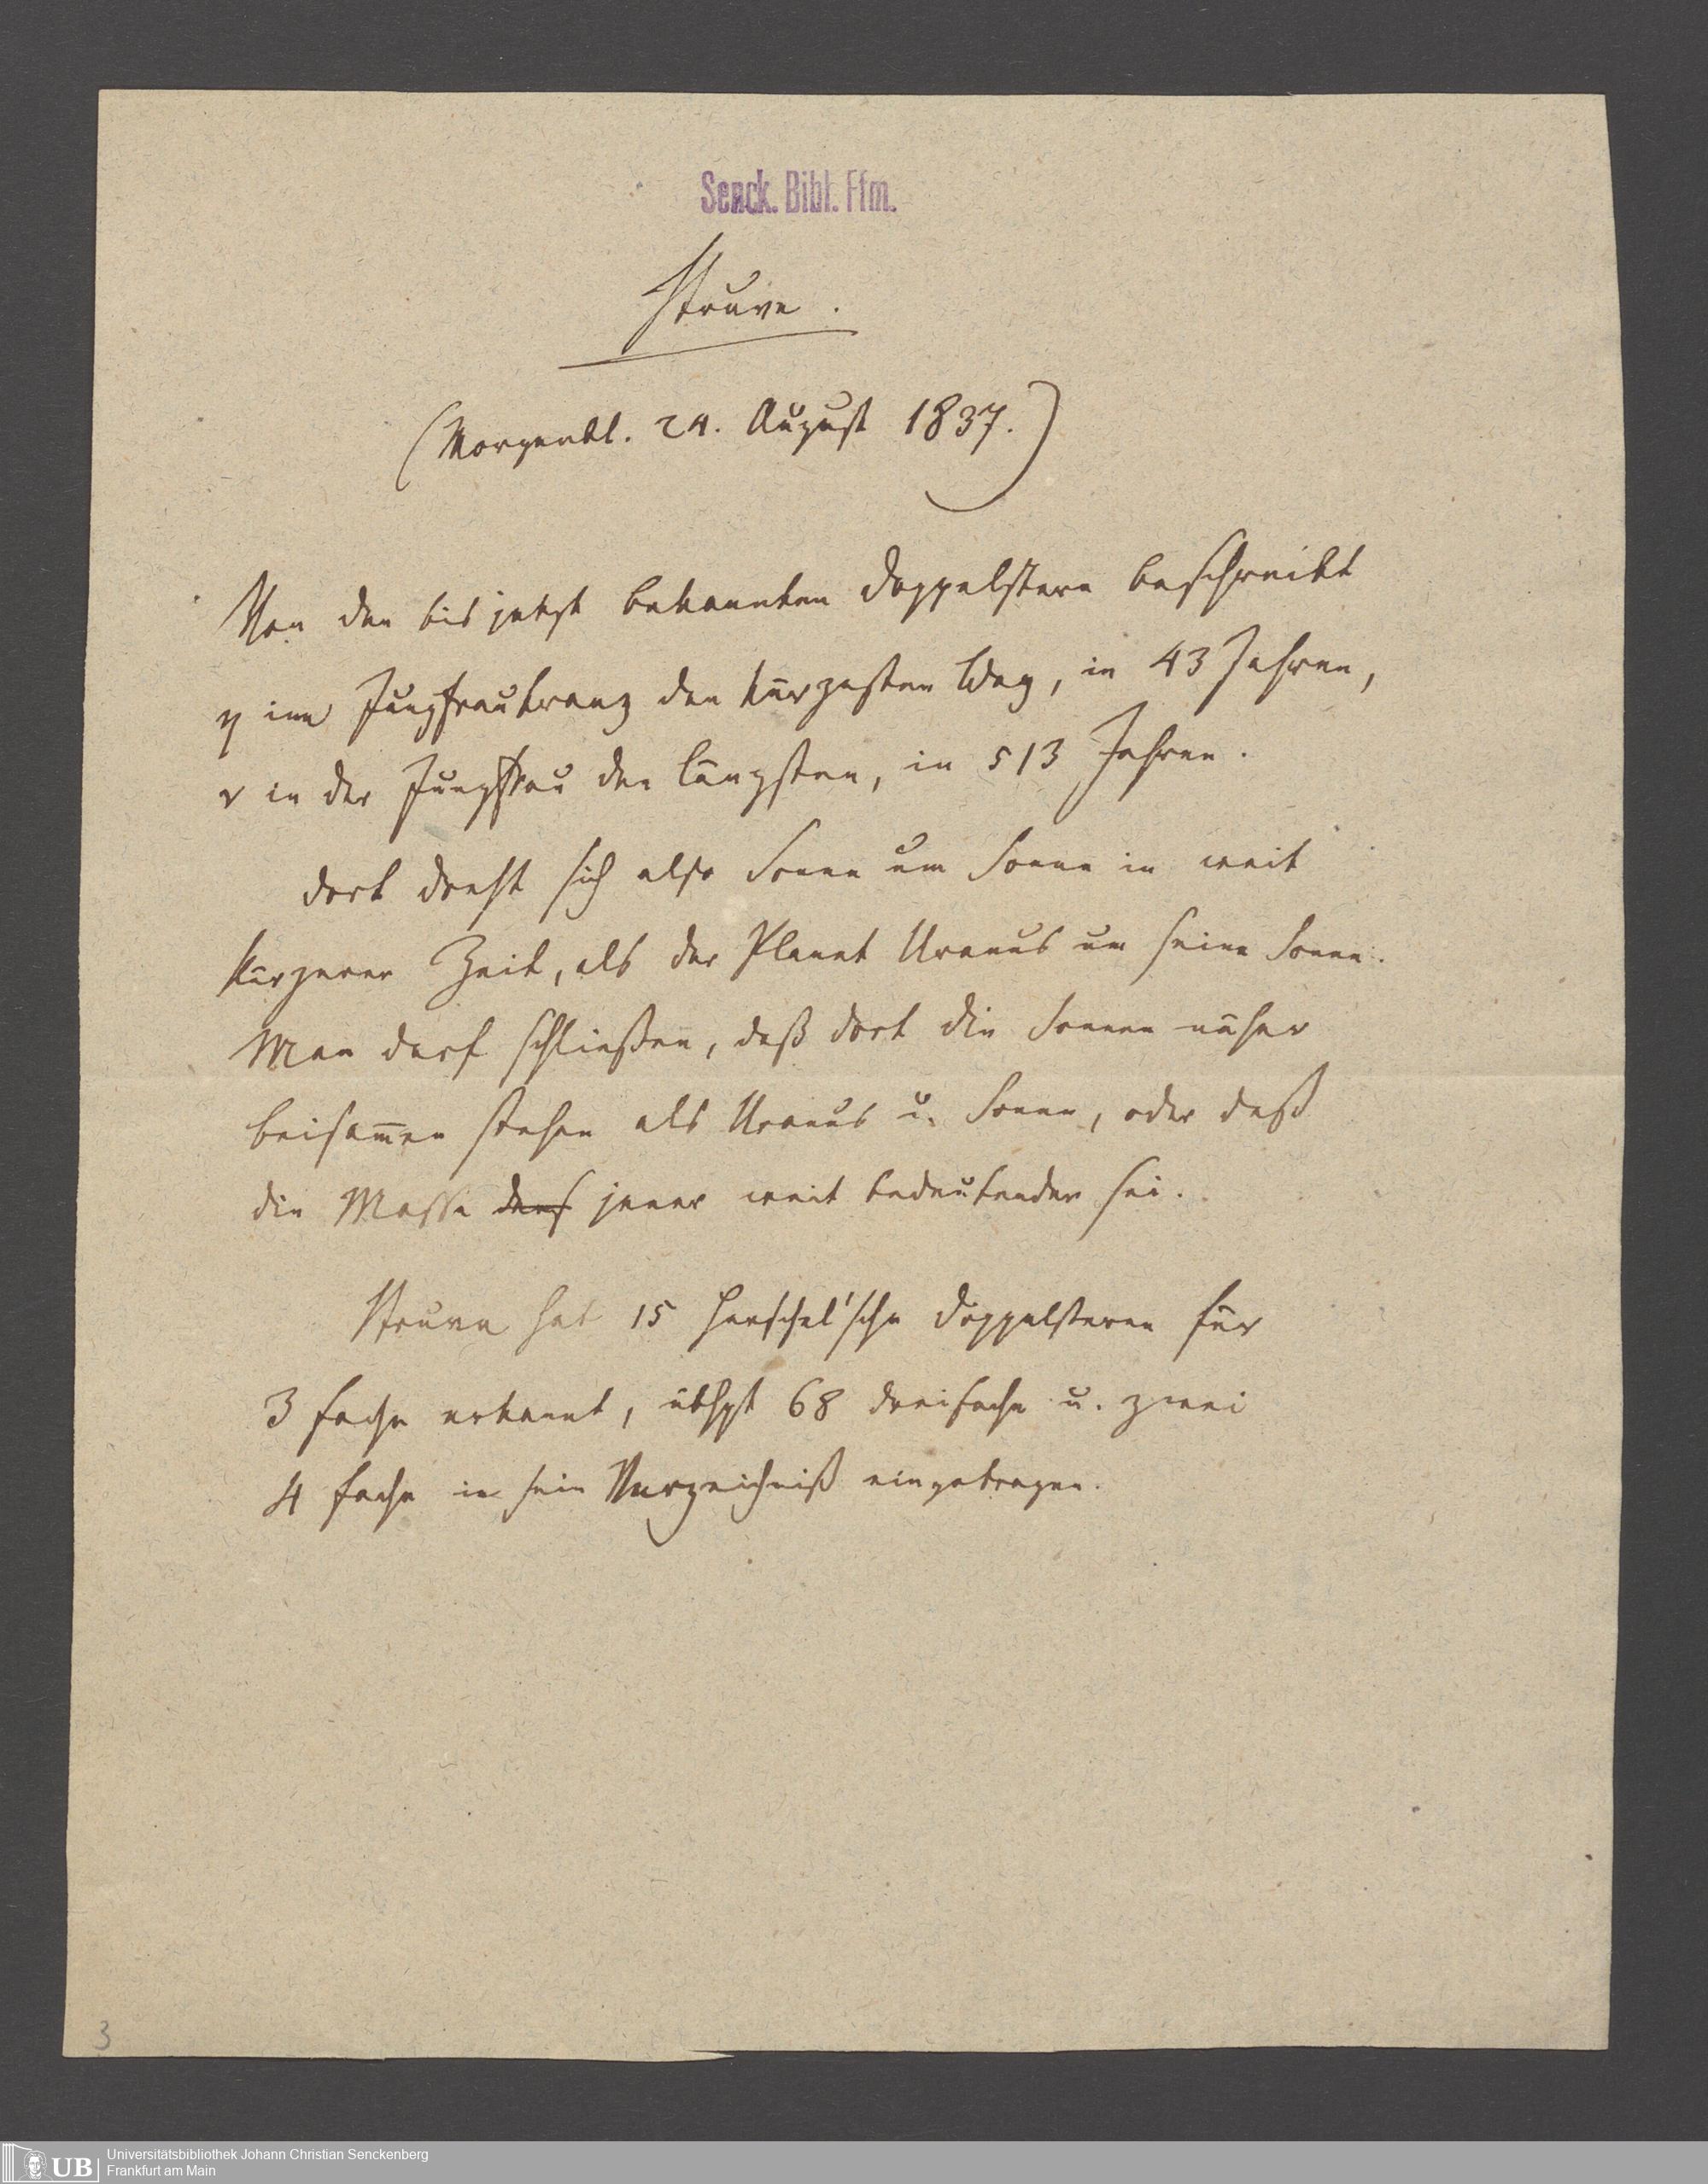 Senck. Bibl. Ffm.
Struve.
(Morgenbl. 24. August 1837.)
Von den bis jetzt bekannten Doppelstern beschreibt
η im Jungfraukranz den kürzesten Weg, in 43 Jahren,
γ in der Jungfrau den längsten, in 513 Jahren.
Dort dreht sich also Sonne um Sonne in weit
kürzerer Zeit, als der Planet Uranus um seine Sonne.
Man darf schließen, daß dort die Sonnen näher
beisam̅en stehen als Uranus u. Sonne, oder daß
die Masse jener weit bedeutender sei.
Struve hat 15 Herschel'sche Doppelsterne für
3 fache erkannt, übhpt 68 dreifache u. zwei
4 fache in sein Verzeichniß eingetragen.
3
UB
Universitätsbibliothek Johann Christian Senckenberg
Frankfurt am Main